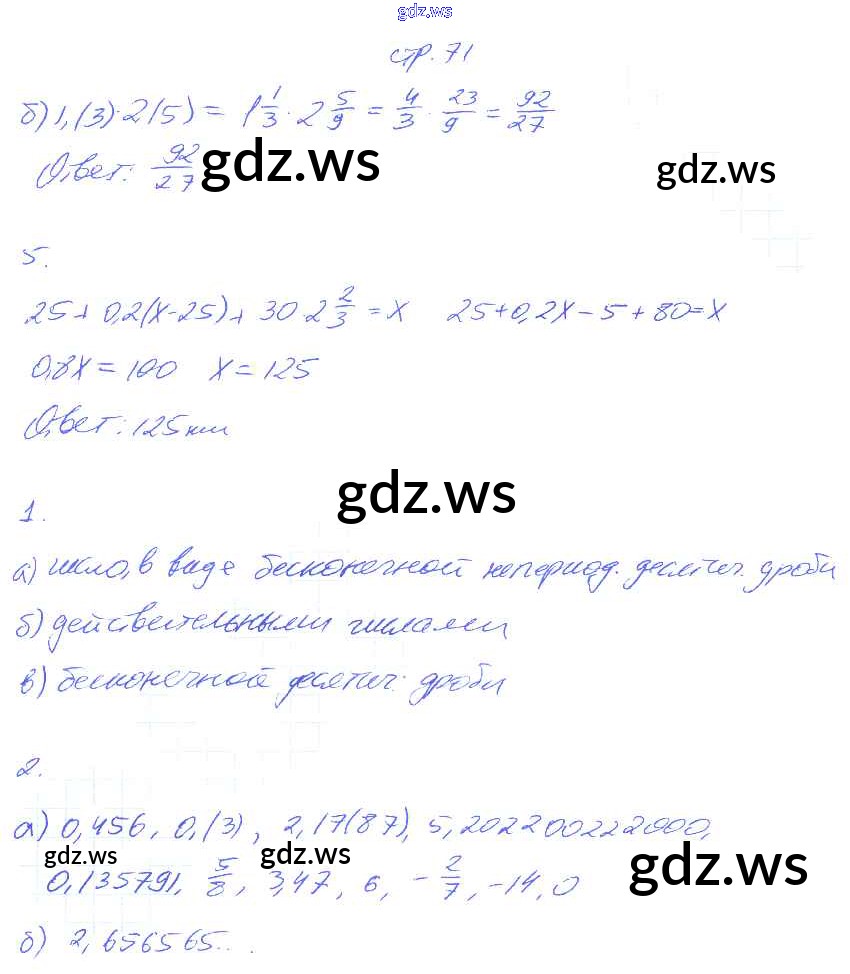 gdz.ws
стр. 71
б) 1,(3)·2(5) = 1 1/3 · 2 5/9 = 4/3 · 23/9 = 92/27
Ответ: 92/27 gdz.ws gdz.ws
5.
25+ 0,2(x-25)+ 30·2 2/3 = x 25+0,2x-5+80=x
0,8x = 100 x = 125
Ответ: 125км
gdz.ws
1.
а) число, в виде бесконечной непериод. десятич. дроби
б) действительными числами
в) бесконечной десятич. дроби
2.
а) 0,456, 0,(3), 2,17(87), 5,202200222000,
gdz.ws gdz.ws gdz.ws
0,135791, 5/8, 3,47, 6, -2/7, -14, 0
б) 2,656565...